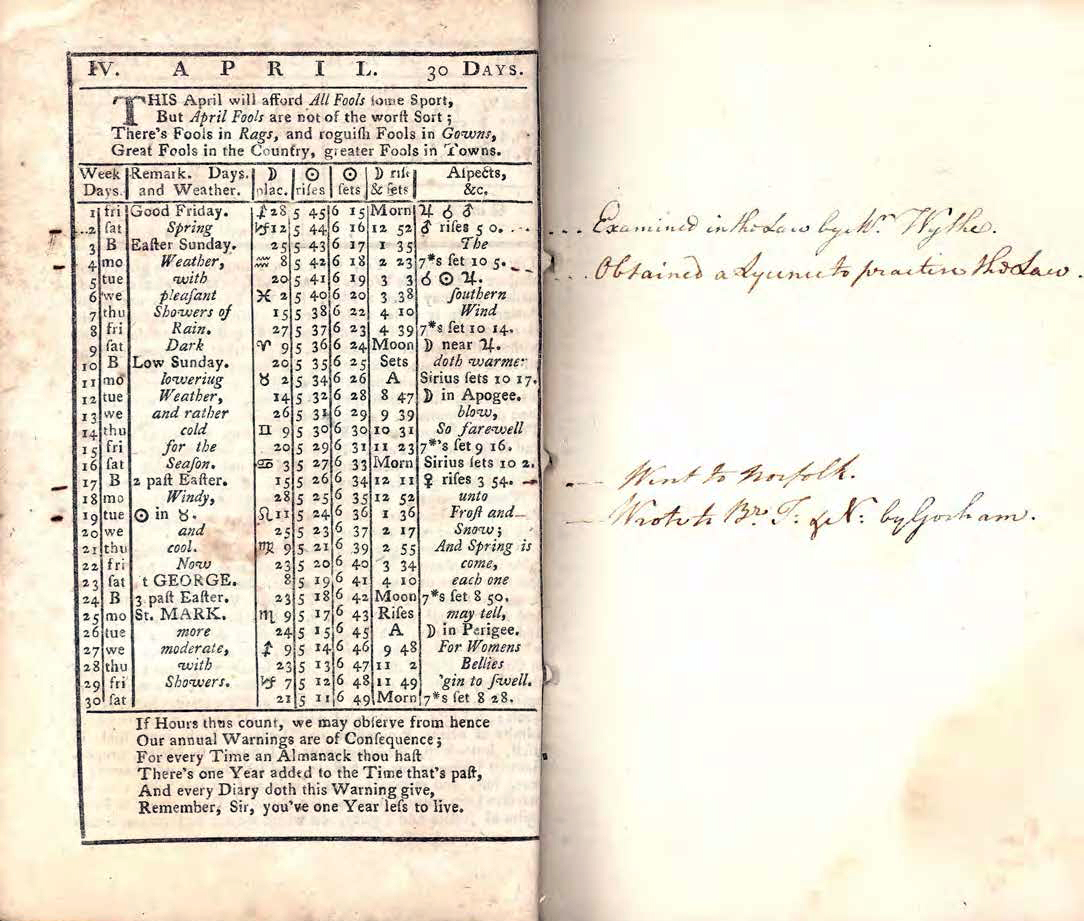 IV. APRIL. 30 DAYS.
THIS April will afford All Fools ſome Sport,
But April Fools are not of the worſt Sort;
There's Fools in Rags, and roguiſh Fools in Gowns,
Great Fools in the Country, greater Fools in Towns.
Week Days. | Remark. Days. and Weather. | ☽ plac. | ☉ riſes | ☉ ſets | ☽ riſe & ſets | Aſpects, &c.
1 fri Good Friday. ♐ 28 5 45 6 15 Morn ♃ ☌ ♂
2 ſat Spring ♑ 12 5 44 6 16 12 52 ♂ riſes 5 0.
3 B Eaſter Sunday. 25 5 43 6 17 1 35 The
4 mo Weather, ♒ 8 5 42 6 18 2 23 7*s ſet 10 5.
5 tue with 20 5 41 6 19 3 3 ☌ ☉ ♃.
6 we pleaſant ♓ 2 5 40 6 20 3 38 ſouthern
7 thu Showers of 15 5 38 6 22 4 10 Wind
8 fri Rain. 27 5 37 6 23 4 39 7*s ſet 10 14.
9 ſat Dark ♈ 9 5 36 6 24 Moon ☽ near ♃.
10 B Low Sunday. 20 5 35 6 25 Sets doth warmer
11 mo loweriug ♉ 2 5 34 6 26 A Sirius ſets 10 17.
12 tue Weather, 14 5 32 6 28 8 47 ☽ in Apogee.
13 we and rather 26 5 31 6 29 9 39 blow,
14 thu cold ♊ 9 5 30 6 30 10 31 So farewell
15 fri for the 20 5 29 6 31 11 23 7*'s ſet 9 16.
16 ſat Seaſon. ♋ 3 5 27 6 33 Morn Sirius ſets 10 2.
17 B 2 paſt Eaſter. 15 5 26 6 34 12 11 ♀ riſes 3 54.
18 mo Windy, 28 5 25 6 35 12 52 unto
19 tue ☉ in ♉. ♌ 11 5 24 6 36 1 36 Froſt and
20 we and 25 5 23 6 37 2 17 Snow;
21 thu cool. ♍ 9 5 21 6 39 2 55 And Spring is
22 fri Now 23 5 20 6 40 3 34 come,
23 ſat t GEORGE. 8 5 19 6 41 4 10 each one
24 B 3 paſt Eaſter. 23 5 18 6 42 Moon 7*s ſet 8 50.
25 mo St. MARK. ♏ 9 5 17 6 43 Riſes may tell,
26 tue more 24 5 15 6 45 A ☽ in Perigee.
27 we moderate, ♐ 9 5 14 6 46 9 48 For Womens
28 thu with 23 5 13 6 47 11 2 Bellies
29 fri Showers. ♑ 7 5 12 6 48 11 49 'gin to ſwell.
30 ſat 21 5 11 6 49 Morn 7*s ſet 8 28.
If Hours thus count, we may obſerve from hence
Our annual Warnings are of Conſequence;
For every Time an Almanack thou haſt
There's one Year added to the Time that's paſt,
And every Diary doth this Warning give,
Remember, Sir, you've one Year leſs to live.
Examined in the Law by Mr. Wythe.
Obtained a Lycence to practice the Law.
Went to Norfolk.
Wrote to Br. T: & N: by Gorham.